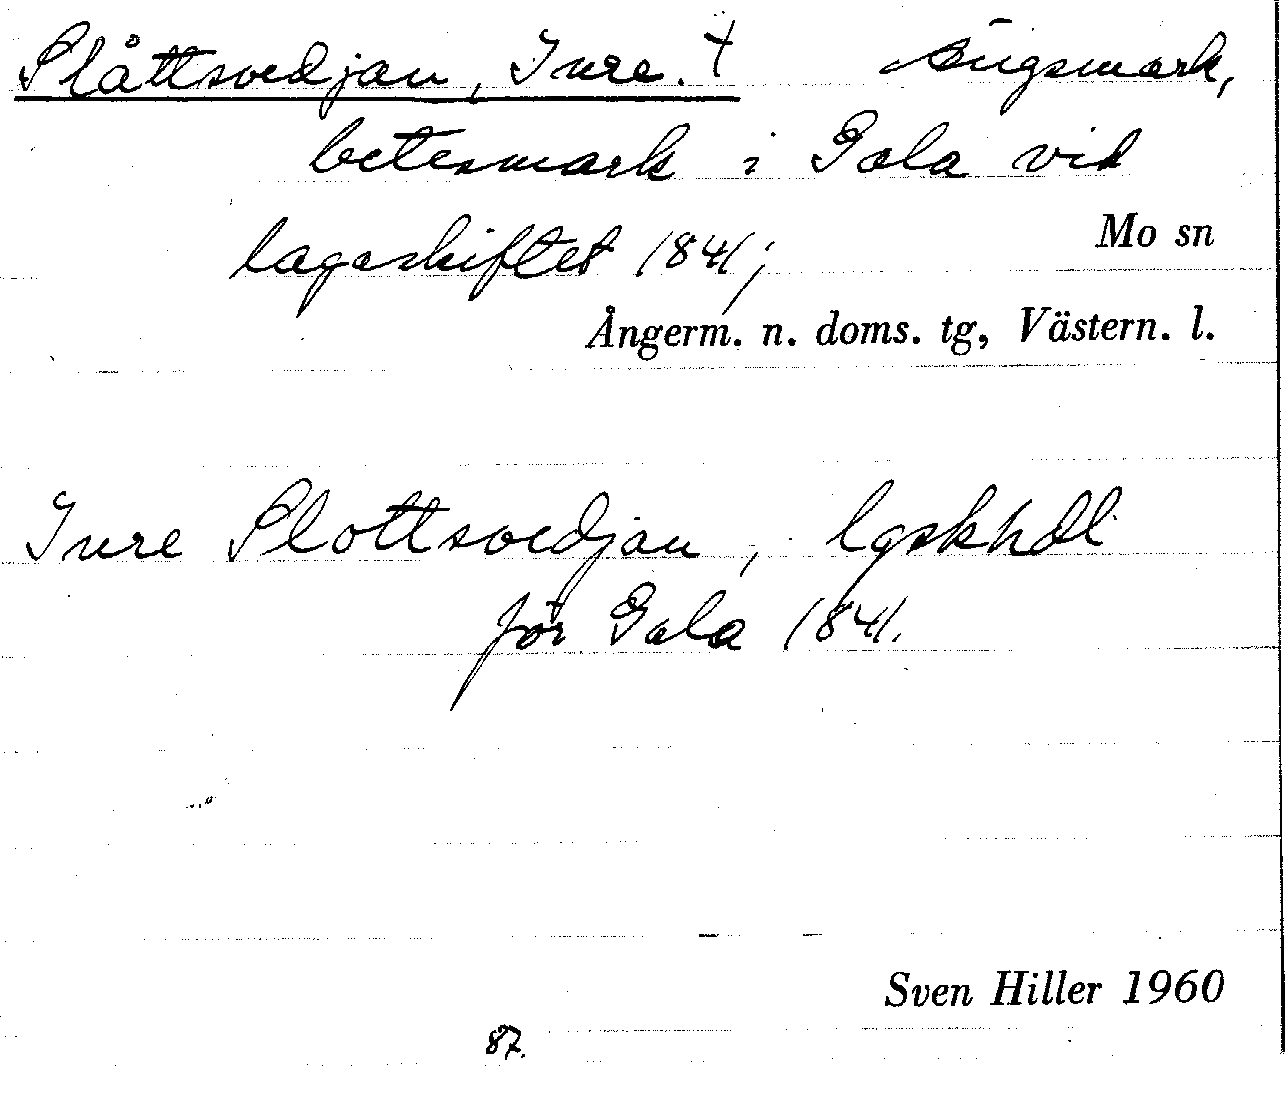 Slåttsvedjan, Inre. † ängsmark,
betesmark i Gala vid
lagaskiftet 1841;
Mo sn
Ångerm. n. doms. tg, Västern. l.
Inre Slottsvedjan, lgskhdl
för Gala 1841.
Sven Hiller 1960
87.